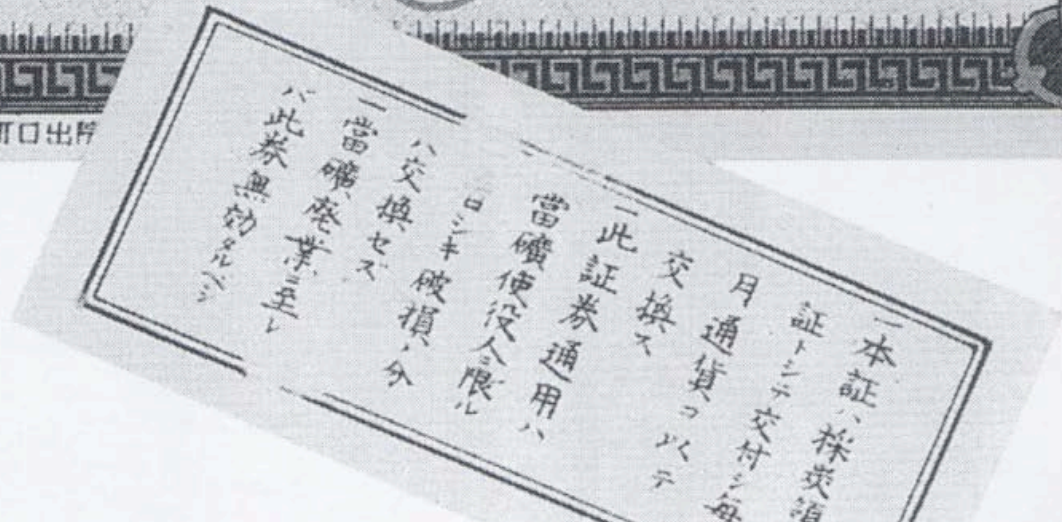 一本証ハ採炭領
証トシテ交付シ毎
月通貨ヲ以テ
交換ス
一此証券通用ハ
當礦使役人ニ限ル
ロシキ破損ノ分
ハ交換セズ
一當礦廃業ニ至レ
バ此券無効タルベシ
町口出